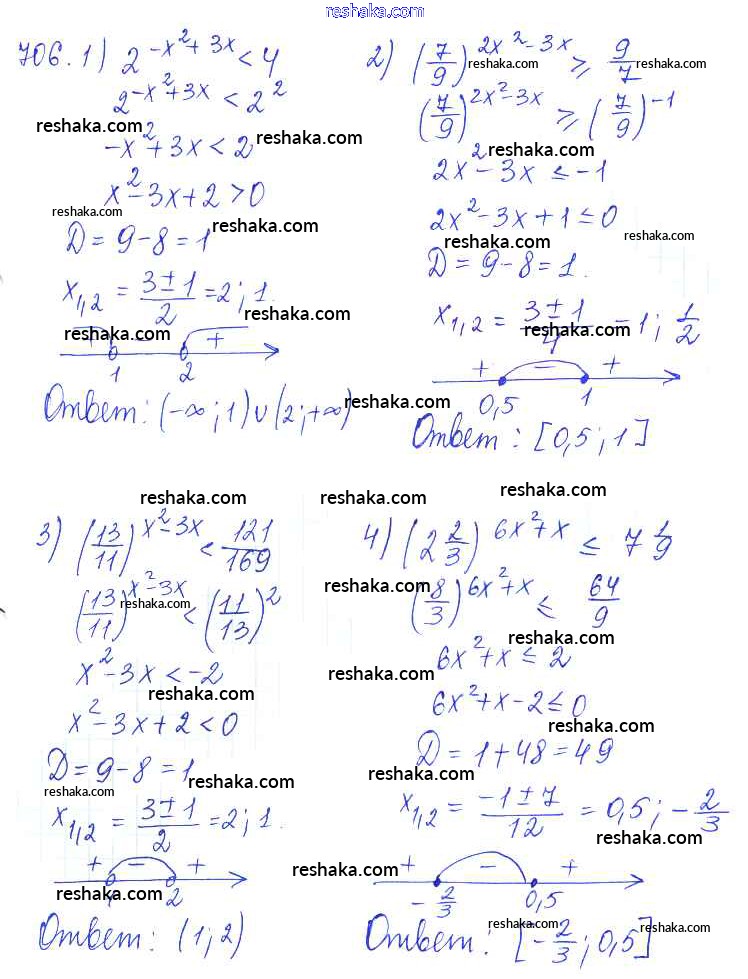 reshaka.com
706. 1) 2^(-x²+3x) < 4
2^(-x²+3x) < 2²
reshaka.com
-x²+3x < 2
reshaka.com
x²-3x+2 > 0
reshaka.com
reshaka.com
D = 9-8 = 1
x₁,₂ = (3±1)/2 = 2; 1.
reshaka.com
reshaka.com
+ - +
1 2
Ответ: (-∞; 1) ∪ (2; +∞)
reshaka.com
2) (7/9)^(2x²-3x) ≥ 9/7
reshaka.com
reshaka.com
(7/9)^(2x²-3x) ≥ (7/9)^(-1)
reshaka.com
2x²-3x ≤ -1
reshaka.com
2x²-3x+1 ≤ 0
reshaka.com
reshaka.com
D = 9-8 = 1.
x₁,₂ = (3±1)/4 = 1; 1/2
reshaka.com
+ - +
0,5 1
reshaka.com
Ответ: [0,5; 1]
reshaka.com
3) (13/11)^(x²-3x) < 121/169
(13/11)^(x²-3x) < (11/13)²
reshaka.com
x²-3x < -2
reshaka.com
x²-3x+2 < 0
D = 9-8 = 1
reshaka.com
x₁,₂ = (3±1)/2 = 2; 1.
reshaka.com
+ - +
1 2
reshaka.com
Ответ: (1; 2)
reshaka.com
4) (2 2/3)^(6x²+x) ≤ 7 1/9
reshaka.com
(8/3)^(6x²+x) ≤ 64/9
reshaka.com
6x²+x ≤ 2
reshaka.com
6x²+x-2 ≤ 0
reshaka.com
D = 1+48 = 49
reshaka.com
x₁,₂ = (-1±7)/12 = 0,5; -2/3
reshaka.com
reshaka.com
+ - +
-2/3 0,5
reshaka.com
reshaka.com
Ответ: [-2/3; 0,5]